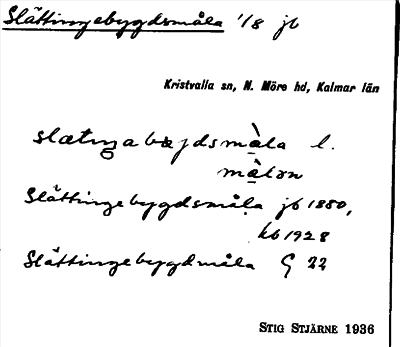 Slättingebygdsmåla 1/8 jb
Kristvalla sn, N. Möre hd, Kalmar län
slætiŋabæjdsmåla l.
målɔn
Slättingebygdsmåla jb 1880,
kb 1928
Slättingebygdmåla G 22
STIG STJÄRNE 1936